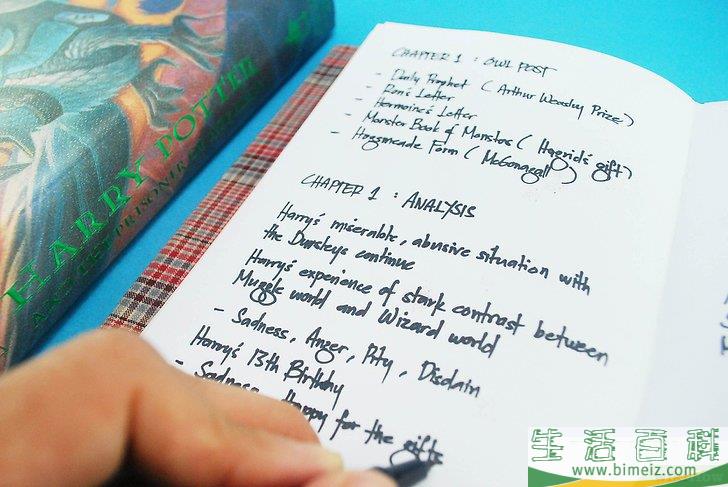 HARRY POTTER
AND THE PRISONER
CHAPTER 1 : OWL POST
- Daily Prophet ( Arthur Weasley Prize)
- Ron's Letter
- Hermoine's Letter
- Monster Book of Monstos ( Hagrid's gift)
- Hogsmeade Form ( McGonagall )
CHAPTER 1 : ANALYSIS
Harry's miserable, abusive situation with
the Dursleys continue
Harry's experience of stark contrast between
Muggle world and Wizard world
- Sadness, Anger, Pity, Disdain
Harry's 13th Birthday
- Sadness, Happy for the gifts
生活百科
www.bimeiz.com